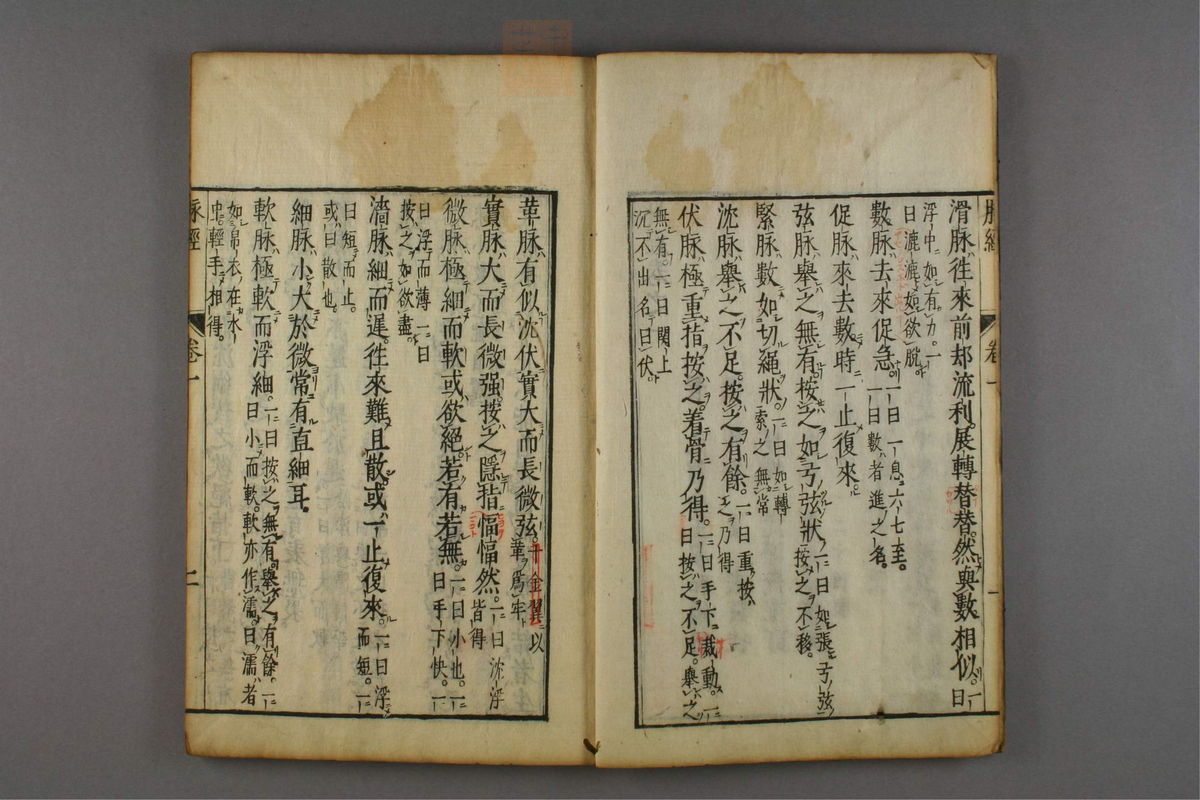 滑脉往來前却流利展轉替替然與數相似一曰
浮中如有力一
曰漉漉如欲脫
數脉去來促急一曰一息六七至
一曰數者進之名
促脉來去數時一止復來
弦脉舉之無有按之如弓弦狀一曰如張弓弦
按之不移
緊脉數如切繩狀一曰如轉
索之無常
沈脉舉之不足按之有餘一曰重按
之乃得
伏脉極重指按之着骨乃得一曰手下裁動一
曰按之不足舉之
無有一曰關上
沉不出名曰伏
革脉有似沈伏實大而長微弦千金翼以
革爲牢
實脉大而長微强按之隱指愊愊然一曰沈浮
皆得
微脉極細而軟或欲絕若有若無一曰小也一
曰手下快一
曰浮而薄一曰
按之如欲盡
濇脉細而遲往來難且散或一止復來一曰浮
而短一
曰短而止
或曰散也
細脉小大於微常有直細耳
軟脉極軟而浮細一曰按之無有舉之有餘一
曰小而軟軟亦作濡曰濡者
如帛衣在水
中輕手相得
脉經
卷一
二